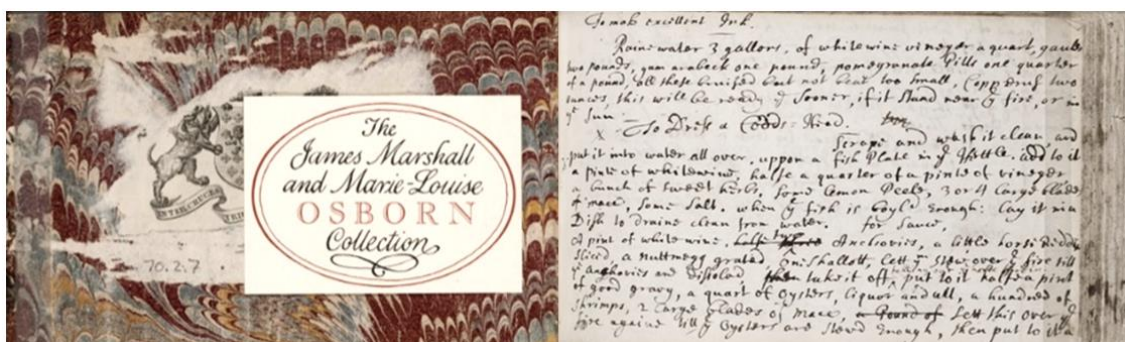 The
James Marshall
and Marie-Louise
OSBORN
Collection
70.2.7
To mak excellent Ink.
Raine water 3 gallons, of white wine vineger a quart, gaules
two pounds, gum araback one pound, pomegranate Pills one quarter
of a pound, all these bruised but not beat too small, Copperus two
ounces, this will be ready ye sooner, if it stand near ye fire, or in
ye Sun.
To Dress a Codds-Head.
Scrape and wash it clean and
put it into water all over, upon a fish Plate in ye Kettle. add to it
a pinte of white wine, halfe a quarter of a pinte of vineger
a bunch of sweet herbs, some Lemon Peele, 3 or 4 large blades
of mace, some Salt. when ye fish is boyl'd Enough: lay it in a
Dish to draine clean from water. for Sauce,
A pint of white wine, Anchovies, a little horse Reddish
sliced, a nuttmegg grated, One shallott, Lett ym stew over ye fire till
ye anchovies are dissolved, then take it off, put to it halfe a pint
of good gravy, a quart of Oysters, liquor and all, a hundred of
shrimps, 2 large blades of mace, a Pound of Lett this over ye
fire againe till ye Oysters are stewd Enough, then put to it a